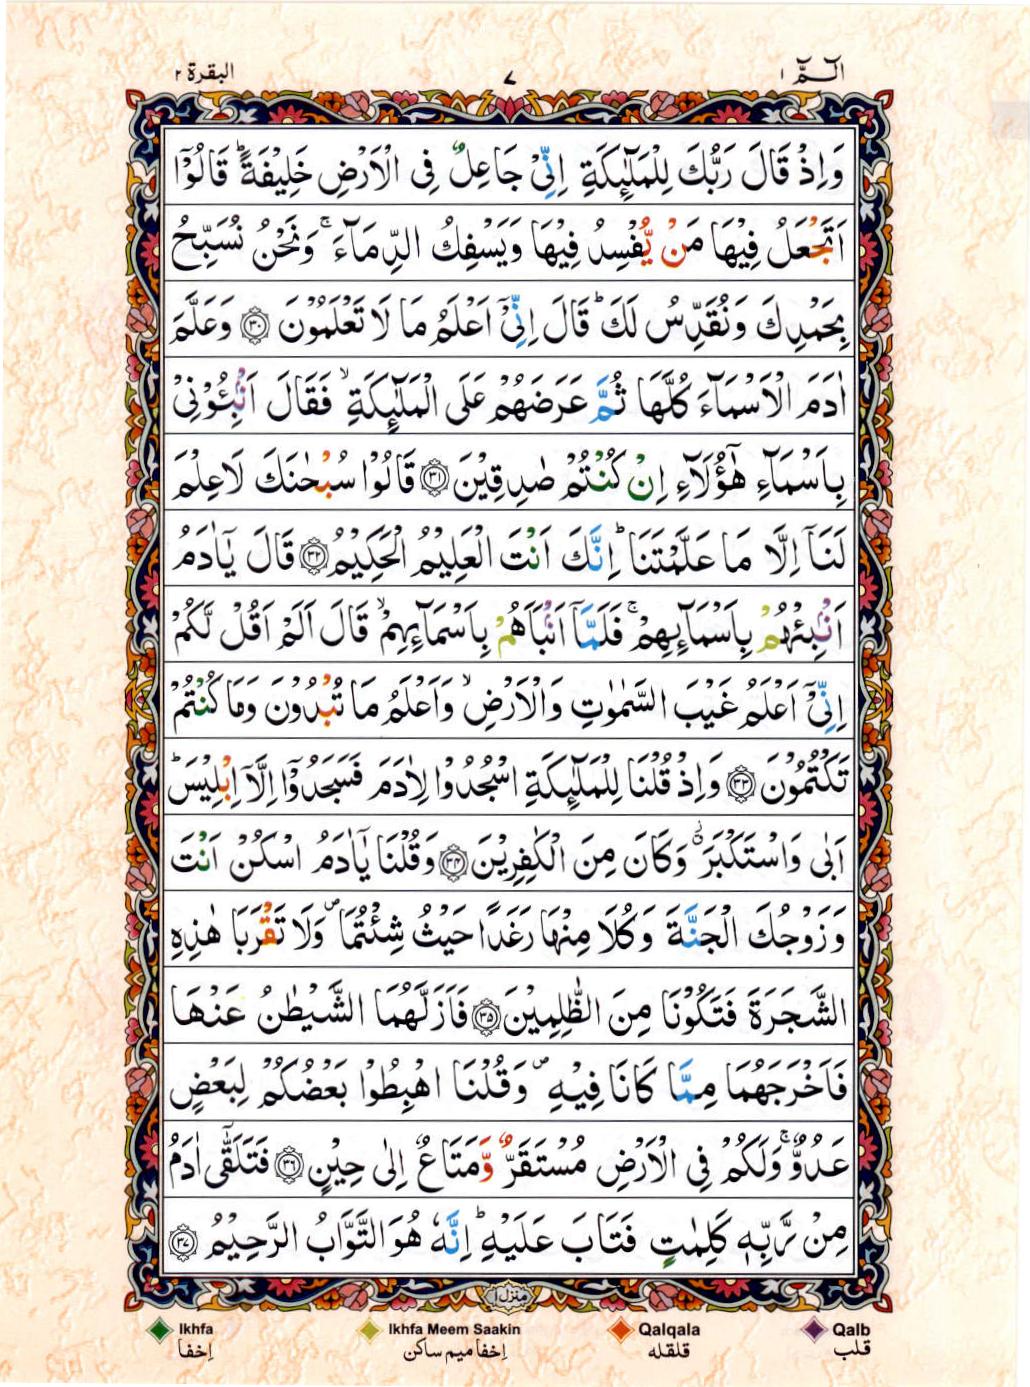 الٓمّٓ ١ ٧ البقرة ٢
وَاِذْ قَالَ رَبُّكَ لِلْمَلٰٓئِكَةِ اِنِّیْ جَاعِلٌ فِی الْاَرْضِ خَلِیْفَةً ؕ قَالُوْۤا
اَتَجْعَلُ فِیْهَا مَنْ یُّفْسِدُ فِیْهَا وَیَسْفِكُ الدِّمَآءَ ۚ وَنَحْنُ نُسَبِّحُ
بِحَمْدِكَ وَنُقَدِّسُ لَكَ ؕ قَالَ اِنِّیْۤ اَعْلَمُ مَا لَا تَعْلَمُوْنَ ﴿۳۰﴾ وَعَلَّمَ
اٰدَمَ الْاَسْمَآءَ كُلَّهَا ثُمَّ عَرَضَهُمْ عَلَی الْمَلٰٓئِكَةِ ۙ فَقَالَ اَنْۢبِـُٔوْنِیْ
بِاَسْمَآءِ هٰۤؤُلَآءِ اِنْ كُنْتُمْ صٰدِقِیْنَ ﴿۳۱﴾ قَالُوْا سُبْحٰنَكَ لَا عِلْمَ
لَنَاۤ اِلَّا مَا عَلَّمْتَنَا ؕ اِنَّكَ اَنْتَ الْعَلِیْمُ الْحَكِیْمُ ﴿۳۲﴾ قَالَ یٰۤاٰدَمُ
اَنْۢبِئْهُمْ بِاَسْمَآئِهِمْ ۚ فَلَمَّاۤ اَنْۢبَاَهُمْ بِاَسْمَآئِهِمْ ۙ قَالَ اَلَمْ اَقُلْ لَّكُمْ
اِنِّیْۤ اَعْلَمُ غَیْبَ السَّمٰوٰتِ وَالْاَرْضِ ۙ وَاَعْلَمُ مَا تُبْدُوْنَ وَمَا كُنْتُمْ
تَكْتُمُوْنَ ﴿۳۳﴾ وَاِذْ قُلْنَا لِلْمَلٰٓئِكَةِ اسْجُدُوْا لِاٰدَمَ فَسَجَدُوْۤا اِلَّاۤ اِبْلِیْسَ ؕ
اَبٰی وَاسْتَكْبَرَ ۫ۗ وَكَانَ مِنَ الْكٰفِرِیْنَ ﴿۳۴﴾ وَقُلْنَا یٰۤاٰدَمُ اسْكُنْ اَنْتَ
وَزَوْجُكَ الْجَنَّةَ وَكُلَا مِنْهَا رَغَدًا حَیْثُ شِئْتُمَا ۪ وَلَا تَقْرَبَا هٰذِهِ
الشَّجَرَةَ فَتَكُوْنَا مِنَ الظّٰلِمِیْنَ ﴿۳۵﴾ فَاَزَلَّهُمَا الشَّیْطٰنُ عَنْهَا
فَاَخْرَجَهُمَا مِمَّا كَانَا فِیْهِ ۪ وَقُلْنَا اهْبِطُوْا بَعْضُكُمْ لِبَعْضٍ
عَدُوٌّ ۚ وَلَكُمْ فِی الْاَرْضِ مُسْتَقَرٌّ وَّمَتَاعٌ اِلٰی حِیْنٍ ﴿۳۶﴾ فَتَلَقّٰۤی اٰدَمُ
مِنْ رَّبِّهٖ كَلِمٰتٍ فَتَابَ عَلَیْهِ ؕ اِنَّهٗ هُوَ التَّوَّابُ الرَّحِیْمُ ﴿۳۷﴾
منزل ١
Ikhfa Ikhfa Meem Saakin Qalqala Qalb
اِخفا اِخفا میم ساکن قلقله قلب